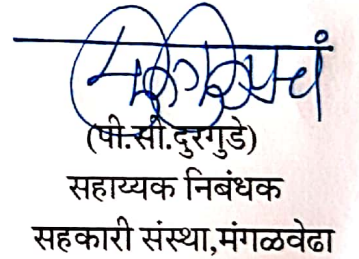 (पी.सी.दुरगुडे)
सहाय्यक निबंधक
सहकारी संस्था,मंगळवेढा